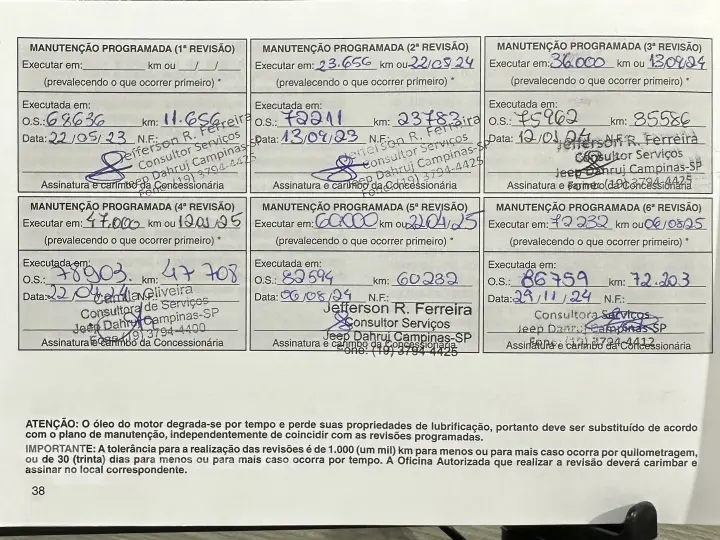 MANUTENÇÃO PROGRAMADA (1ª REVISÃO)
Executar em: km ou / /
(prevalecendo o que ocorrer primeiro) *
Executada em:
O.S.: 68636 km: 11.656
Data: 22/05/23 N.F.:
Jefferson R. Ferreira
Consultor Serviços
Jeep Dahruj Campinas-SP
Fone: (19) 3794-4425
Assinatura e carimbo da Concessionária
MANUTENÇÃO PROGRAMADA (2ª REVISÃO)
Executar em: 23.656 km ou 22/05/24
(prevalecendo o que ocorrer primeiro) *
Executada em:
O.S.: 72211 km: 23783
Data: 13/09/23 N.F.
Jefferson R. Ferreira
Consultor Serviços
Jeep Dahruj Campinas-SP
Fone: (19) 3794-4425
Assinatura e carimbo da Concessionária
MANUTENÇÃO PROGRAMADA (3ª REVISÃO)
Executar em: 36.000 km ou 13/09/24
(prevalecendo o que ocorrer primeiro) *
Executada em:
O.S.: 75962 km: 35586
Data: 12/01/24 N.F.
Jefferson R. Ferreira
Consultor Serviços
Jeep Dahruj Campinas-SP
Fone: (19) 3794-4425
Assinatura e carimbo da Concessionária
MANUTENÇÃO PROGRAMADA (4ª REVISÃO)
Executar em: 47.000 km ou 12/01/25
(prevalecendo o que ocorrer primeiro) *
Executada em:
O.S.: 78903. km: 47 708
Data: 22/04/24 N.F.
Camila Oliveira
Consultora de Serviços
Jeep Dahruj Campinas-SP
Fone: (19) 3794-4400
Assinatura e carimbo da Concessionária
MANUTENÇÃO PROGRAMADA (5ª REVISÃO)
Executar em: 60000 km ou 22/04/25
(prevalecendo o que ocorrer primeiro) *
Executada em:
O.S.: 82594 km: 60232
Data: 06/08/24 N.F.
Jefferson R. Ferreira
Consultor Serviços
Jeep Dahruj Campinas-SP
Fone: (19) 3794-4425
Assinatura e carimbo da Concessionária
MANUTENÇÃO PROGRAMADA (6ª REVISÃO)
Executar em: 72232 km ou 06/08/25
(prevalecendo o que ocorrer primeiro) *
Executada em:
O.S.: 86759 km: 72.203
Data: 29/11/24 N.F.:
Consultora Serviços
Jeep Dahruj Campinas-SP
Fone: (19) 3794-4412
Assinatura e carimbo da Concessionária
ATENÇÃO: O óleo do motor degrada-se por tempo e perde suas propriedades de lubrificação, portanto deve ser substituído de acordo
com o plano de manutenção, independentemente de coincidir com as revisões programadas.
IMPORTANTE: A tolerância para a realização das revisões é de 1.000 (um mil) km para menos ou para mais caso ocorra por quilometragem,
ou de 30 (trinta) dias para menos ou para mais caso ocorra por tempo. A Oficina Autorizada que realizar a revisão deverá carimbar e
assinar no local correspondente.
38